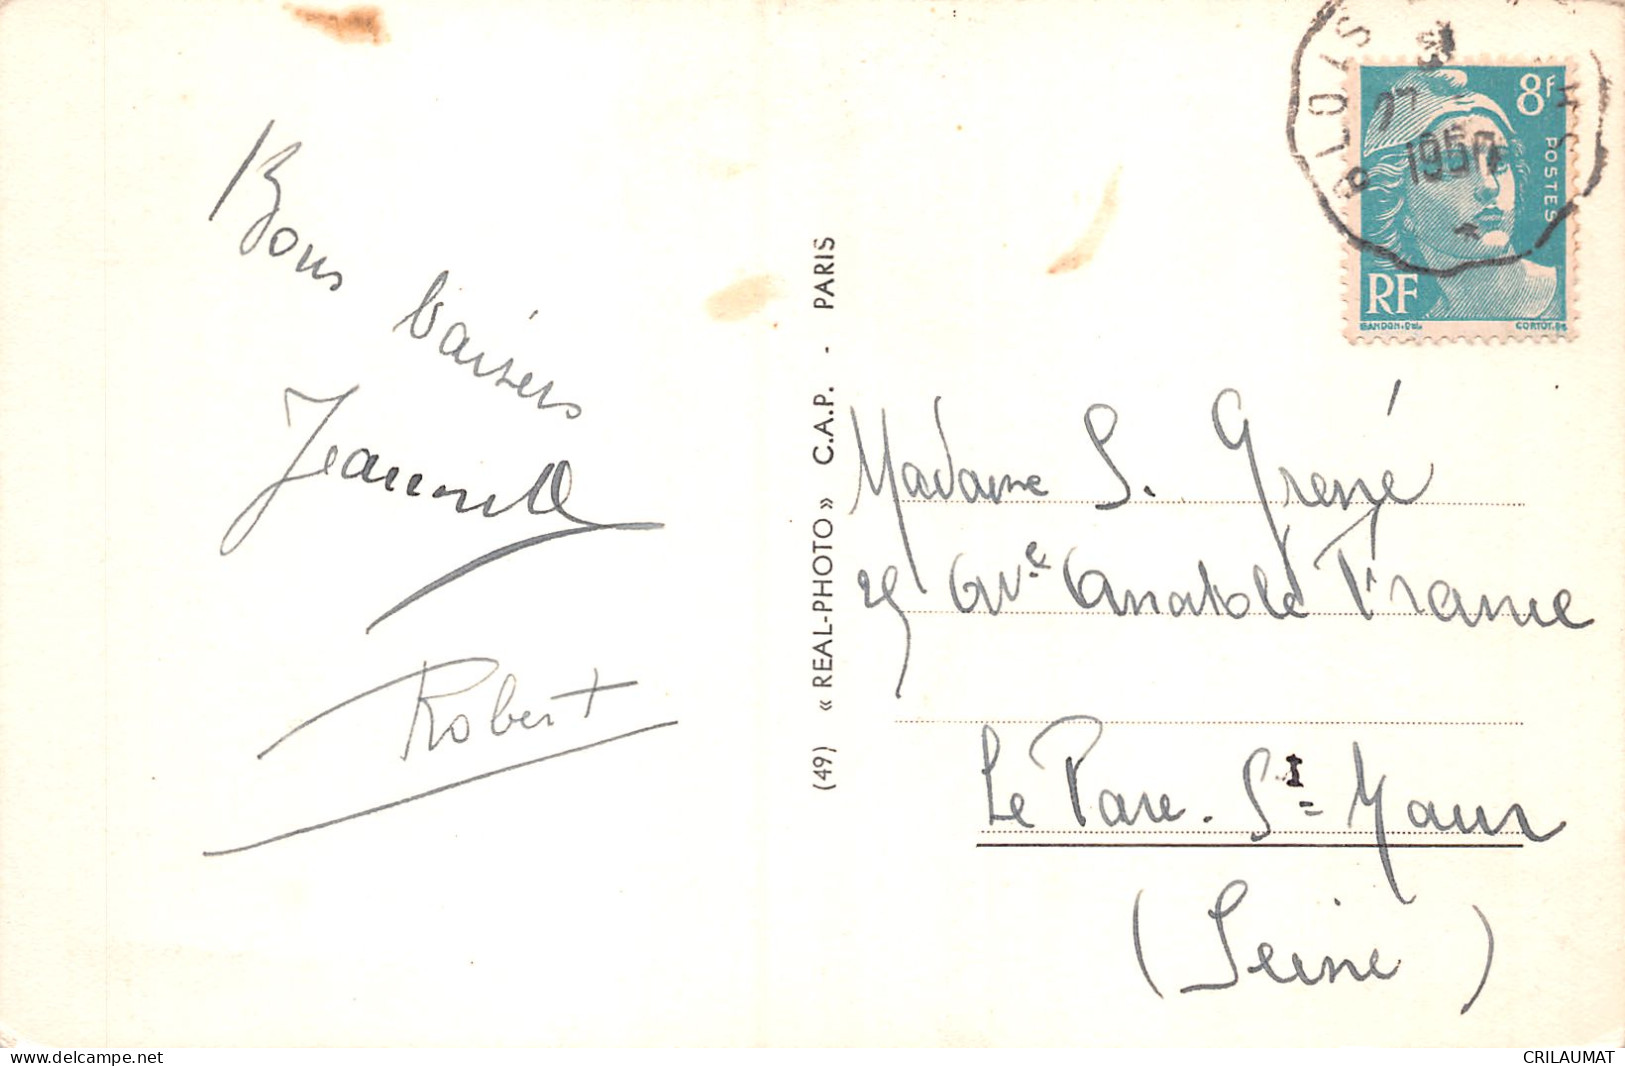 Bons baisers
Jeannette
Robert
(49) « REAL-PHOTO » C.A.P. - PARIS
BLOIS
1950
8F
POSTES
RF
GANDON.Del. CORTOT.Sc
Madame S.
25 Ave Anatole France
Le Parc. St = Maur
(Seine)
https://www.delcampe.net
CRILAUMAT